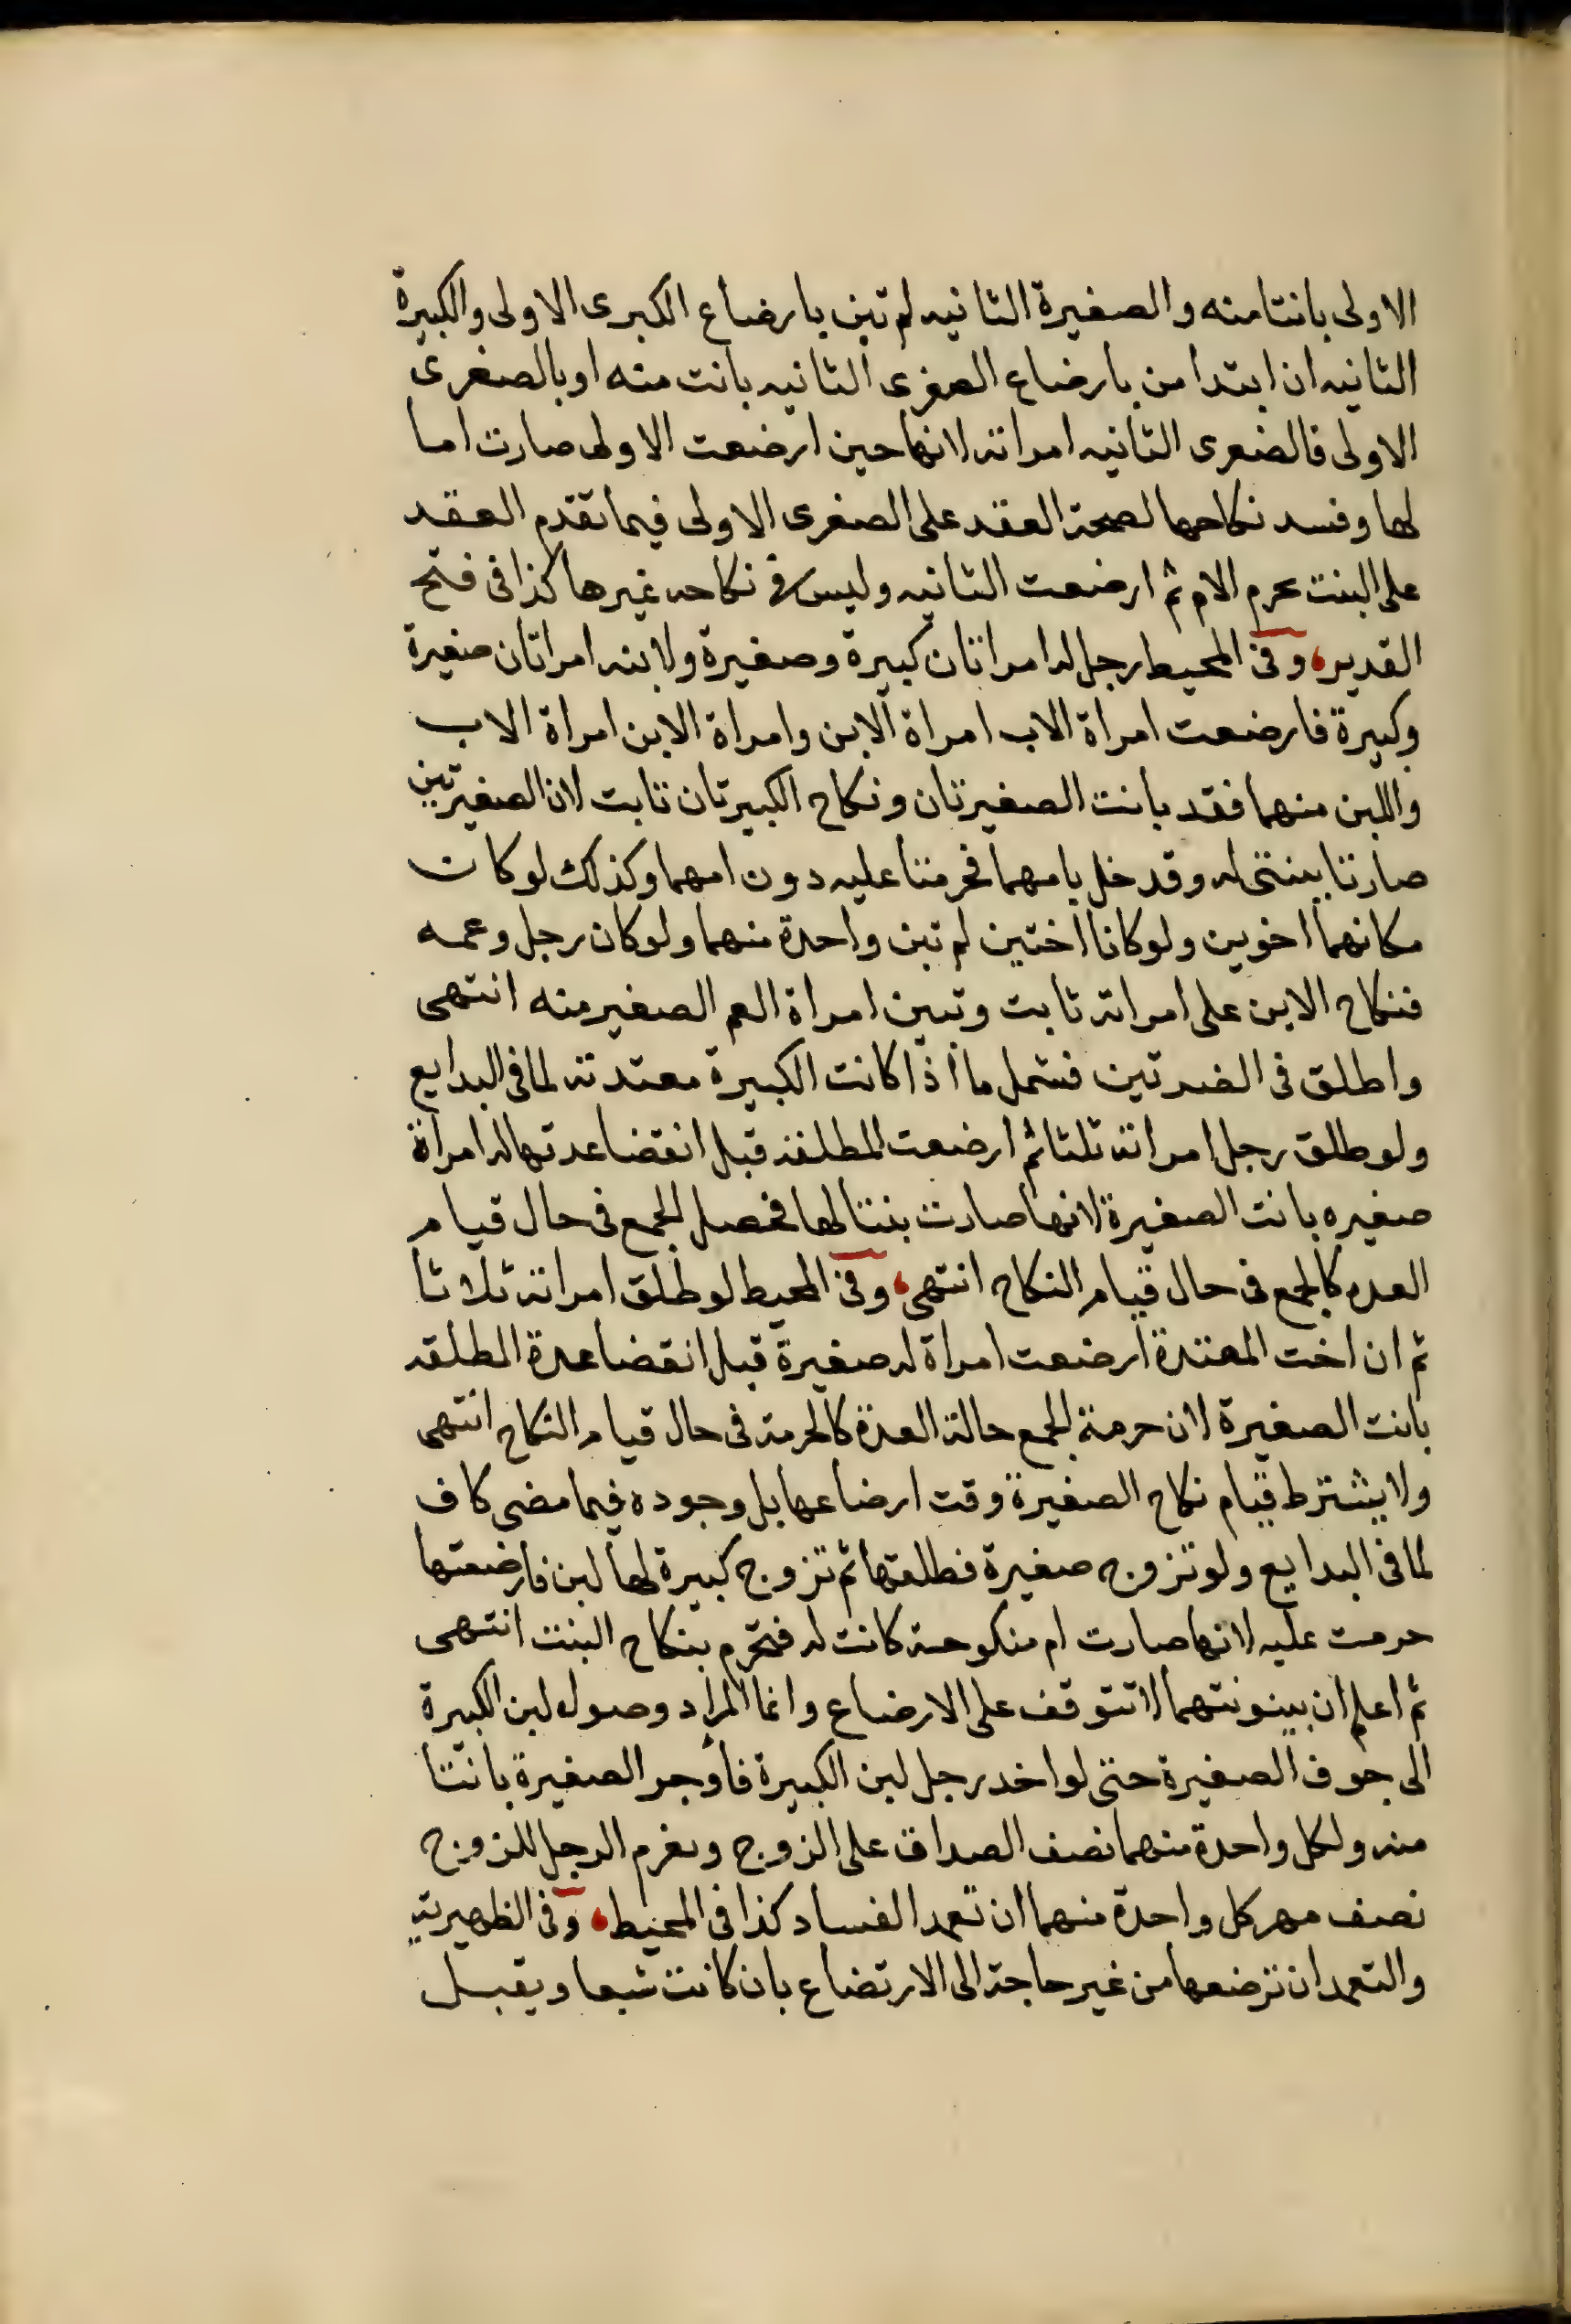 الاولى بانتا منه والصغيرة الثانيه لم تبن بارضاع الكبرى الاولى والكبيرة
الثانيه ان ابتدا من بارضاع الصغرى الثانيه بانت منه او بالصغرى
الاولى فالصغرى الثانيه امراته لانها حين ارضعت الاولى صارت اما
لها وفسد نكاحها لصحة العقد على الصغرى الاولى فيما تقدم العقد
على البنت يحرم الام ثم ارضعت الثانيه وليس في نكاحه غيرها كذا في فتح
القدير، وفي المحيط رجل له امراتان كبيرة وصغيرة ولابنه امراتان صغيرة
وكبيرة فارضعت امراة الاب امراة الابن وامراة الابن امراة الاب
واللبن منهما فقد بانت الصغيرتان ونكاح الكبيرتان ثابت لان الصغيرتين
صارتا بينتي له وقد خل بامهما فحرمتا عليه دون امهما وكذلك لو كان
مكانهما اخوين ولو كانا اختين لم تبن واحدة منهما ولو كان رجل وعمه
فنكاح الابن على امراته ثابت وتبين امراة العم الصغير منه انتهى
واطلق في الضرتين فشمل ما اذا كانت الكبيرة معتدته لما في البدايع
ولو طلق رجل امراته ثلثا ثم ارضعت المطلقة قبل انقضا عدتها له امراة
صغيره بانت الصغيرة لانها صارت بنتا لها فحصل الجمع في حال قيام
العده كالجمع في حال قيام النكاح انتهى، وفي المحيط لو طلق امراته ثلاثا
ثم ان اخت المعتدة ارضعت امراة له صغيرة قبل انقضا عدة المطلقه
بانت الصغيرة لان حرمة الجمع حالة العدة كالحرمة في حال قيام النكاح انتهى
ولا يشترط قيام نكاح الصغيرة وقت ارضاعها بل وجوده فيما مضى كاف
لما في البدايع ولو تزوج صغيرة فطلقها ثم تزوج كبيرة لها لبن فارضعتها
حرمت عليه لانها صارت ام منكوحة كانت له فتحرم بنكاح البنت انتهى
ثم اعلم ان بينونتهما لا تتوقف على الارضاع وانما المراد وصول لبن الكبيرة
الى جوف الصغيرة حتى لو اخد رجل لبن الكبيرة فاوجر الصغيرة بانتا
منه ولكل واحدة منهما نصف الصداق على الزوج ويغرم الرجل للزوج
نصف مهر كل واحدة منهما ان تعمد الفساد كذا في المحيط، وفي الظهيرية
والتعمد ان ترضعها من غير حاجة الى الارتضاع بان كانت شبعا ويقبل